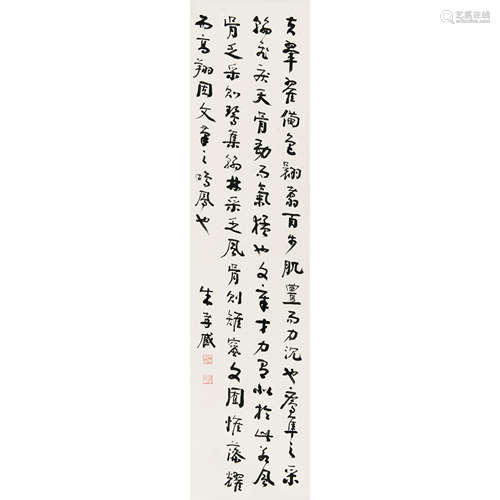 夫翬翟備色翾翥百步肌豐而力沉也鷹隼之采
翰飛戾天骨勁而氣猛也文章才力有似於此若風
骨乏采則鷙集翰林采乏風骨則雉竄文囿惟藻耀
而高翔固文筆之鳴鳳也
朱孝臧
艺狐在线